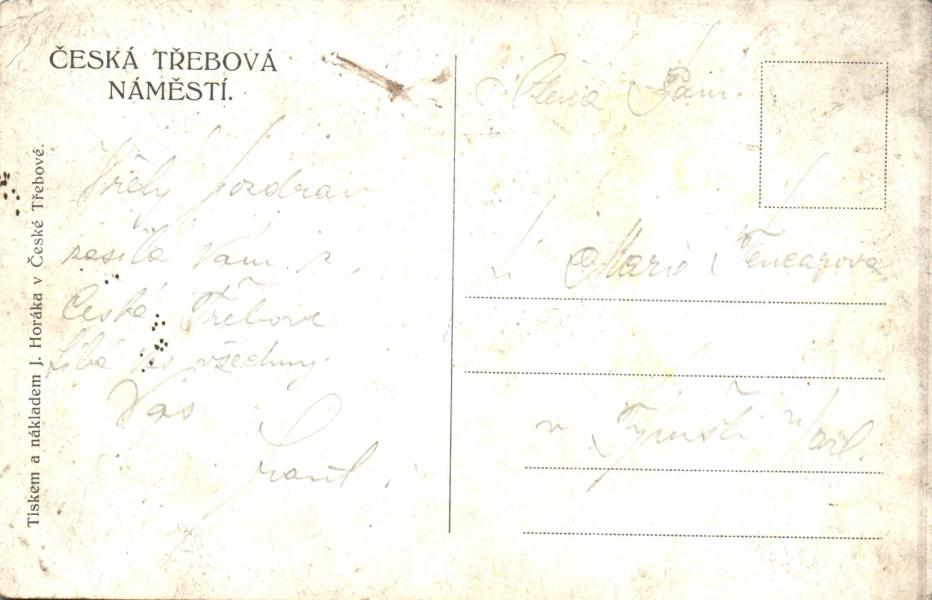 ČESKÁ TŘEBOVÁ
NÁMĚSTÍ.
Tiskem a nákladem J. Horáka v České Třebové.
Vřely pozdrav
zasílá Vám z
České Třebove
líbá Vás všechny
Váš
Ctěná Paní
Marie
v